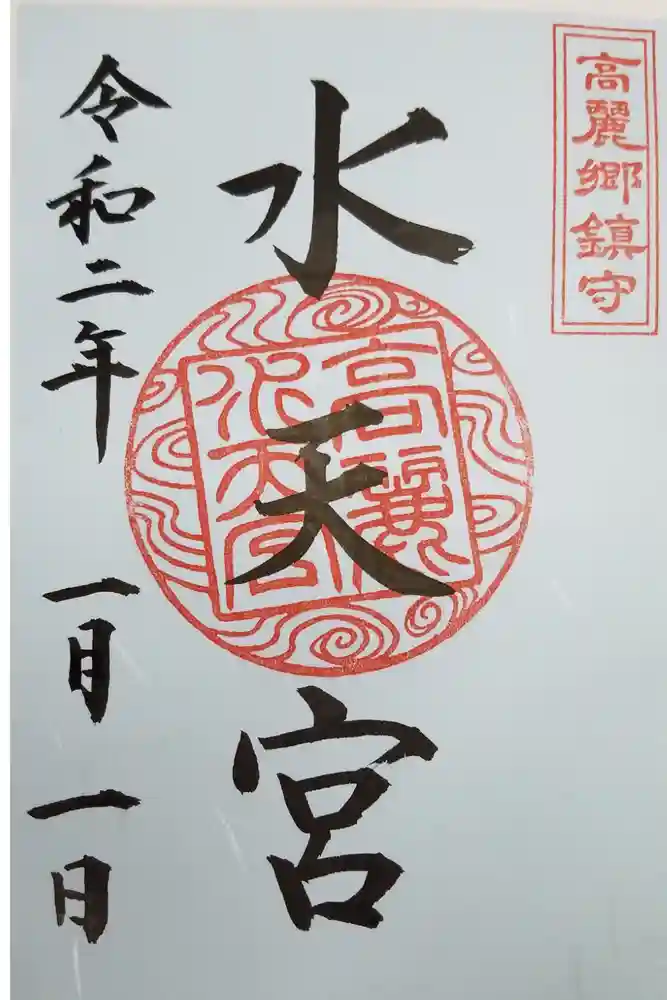 高麗郷鎮守
水天宮
高麗
水天宮
令和二年 一月一日